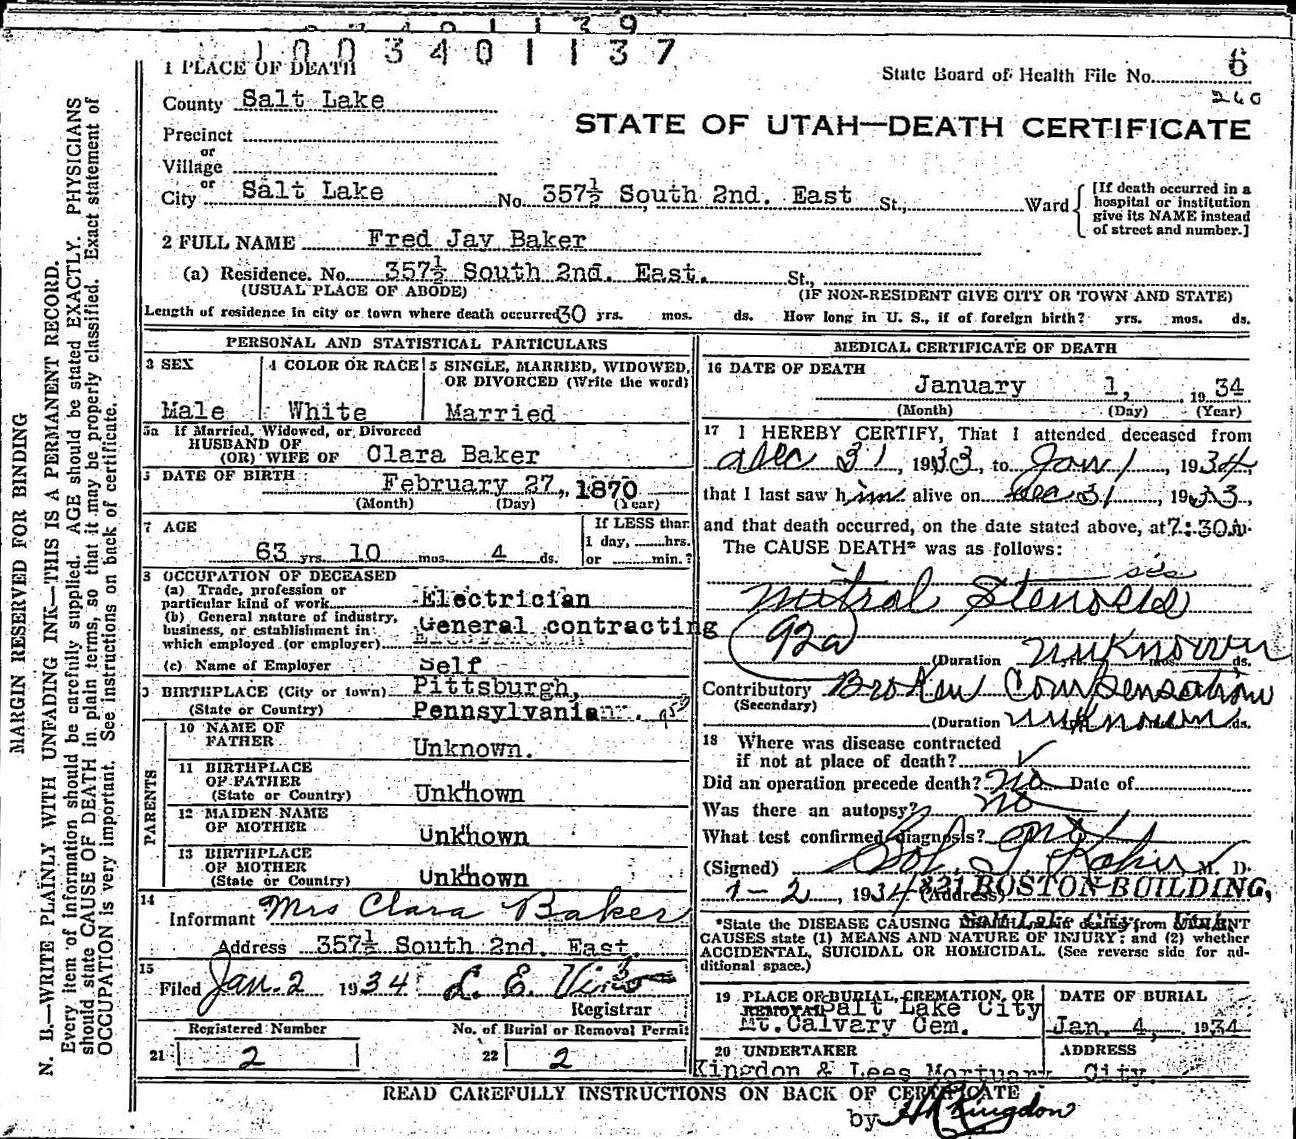 1003401137
State Board of Health File No. 6
260
1 PLACE OF DEATH
County Salt Lake
STATE OF UTAH—DEATH CERTIFICATE
Precinct
or
Village
or
City Salt Lake No. 357½ South 2nd. East St., Ward
[If death occurred in a hospital or institution give its NAME instead of street and number.]
2 FULL NAME Fred Jay Baker
(a) Residence. No. 357½ South 2nd. East. St.,
(USUAL PLACE OF ABODE) (IF NON-RESIDENT GIVE CITY OR TOWN AND STATE)
Length of residence in city or town where death occurred 30 yrs. mos. ds. How long in U. S., if of foreign birth? yrs. mos. ds.
PERSONAL AND STATISTICAL PARTICULARS
3 SEX
Male
4 COLOR OR RACE
White
5 SINGLE, MARRIED, WIDOWED, OR DIVORCED (Write the word)
Married
5a If Married, Widowed, or Divorced
HUSBAND OF
(OR) WIFE OF Clara Baker
DATE OF BIRTH February 27, 1870
(Month) (Day) (Year)
7 AGE
63 yrs. 10 mos. 4 ds.
If LESS than
1 day, hrs.
or min.?
8 OCCUPATION OF DECEASED
(a) Trade, profession or
particular kind of work Electrician
(b) General nature of industry,
business, or establishment in
which employed (or employer) General contracting
(c) Name of Employer Self
9 BIRTHPLACE (City or town) Pittsburgh,
(State or Country) Pennsylvania
10 NAME OF
FATHER Unknown.
11 BIRTHPLACE
OF FATHER
(State or Country) Unknown
12 MAIDEN NAME
OF MOTHER Unknown
13 BIRTHPLACE
OF MOTHER
(State or Country) Unknown
PARENTS
14
Informant Mrs Clara Baker
Address 357½ South 2nd. East.
15
Filed Jan. 2 1934
Registrar
Registered Number
21 2
No. of Burial or Removal Permit
22 2
MEDICAL CERTIFICATE OF DEATH
16 DATE OF DEATH
January 1, 1934
(Month) (Day) (Year)
17 I HEREBY CERTIFY, That I attended deceased from
Dec 31, 1933, to Jan 1, 1934,
that I last saw him alive on Dec 31, 1933,
and that death occurred, on the date stated above, at 7:30
The CAUSE DEATH* was as follows:
Mitral Stenosis
92a
(Duration unknown mos. ds.
Contributory Broken Compensation
(Secondary)
(Duration unknown ds.
18 Where was disease contracted
if not at place of death?
Did an operation precede death? no Date of
Was there an autopsy? no
What test confirmed diagnosis?
(Signed) M. D.
1-2, 1934 (Address) 821 BOSTON BUILDING,
Salt Lake City, Utah
*State the DISEASE CAUSING DEATH, or in deaths from VIOLENT
CAUSES state (1) MEANS AND NATURE OF INJURY; and (2) whether
ACCIDENTAL, SUICIDAL OR HOMICIDAL. (See reverse side for ad-
ditional space.)
19 PLACE OF BURIAL, CREMATION, OR
REMOVAL Salt Lake City
Mt. Calvary Cem.
DATE OF BURIAL
Jan. 4, 1934
20 UNDERTAKER
Kingdon & Lees Mortuary
ADDRESS
City.
READ CAREFULLY INSTRUCTIONS ON BACK OF CERTIFICATE
by Kingdon
MARGIN RESERVED FOR BINDING
N. B.—WRITE PLAINLY WITH UNFADING INK—THIS IS A PERMANENT RECORD.
Every item of information should be carefully supplied. AGE should be stated EXACTLY. PHYSICIANS
should state CAUSE OF DEATH in plain terms, so that it may be properly classified. Exact statement of
OCCUPATION is very important. See instructions on back of certificate.